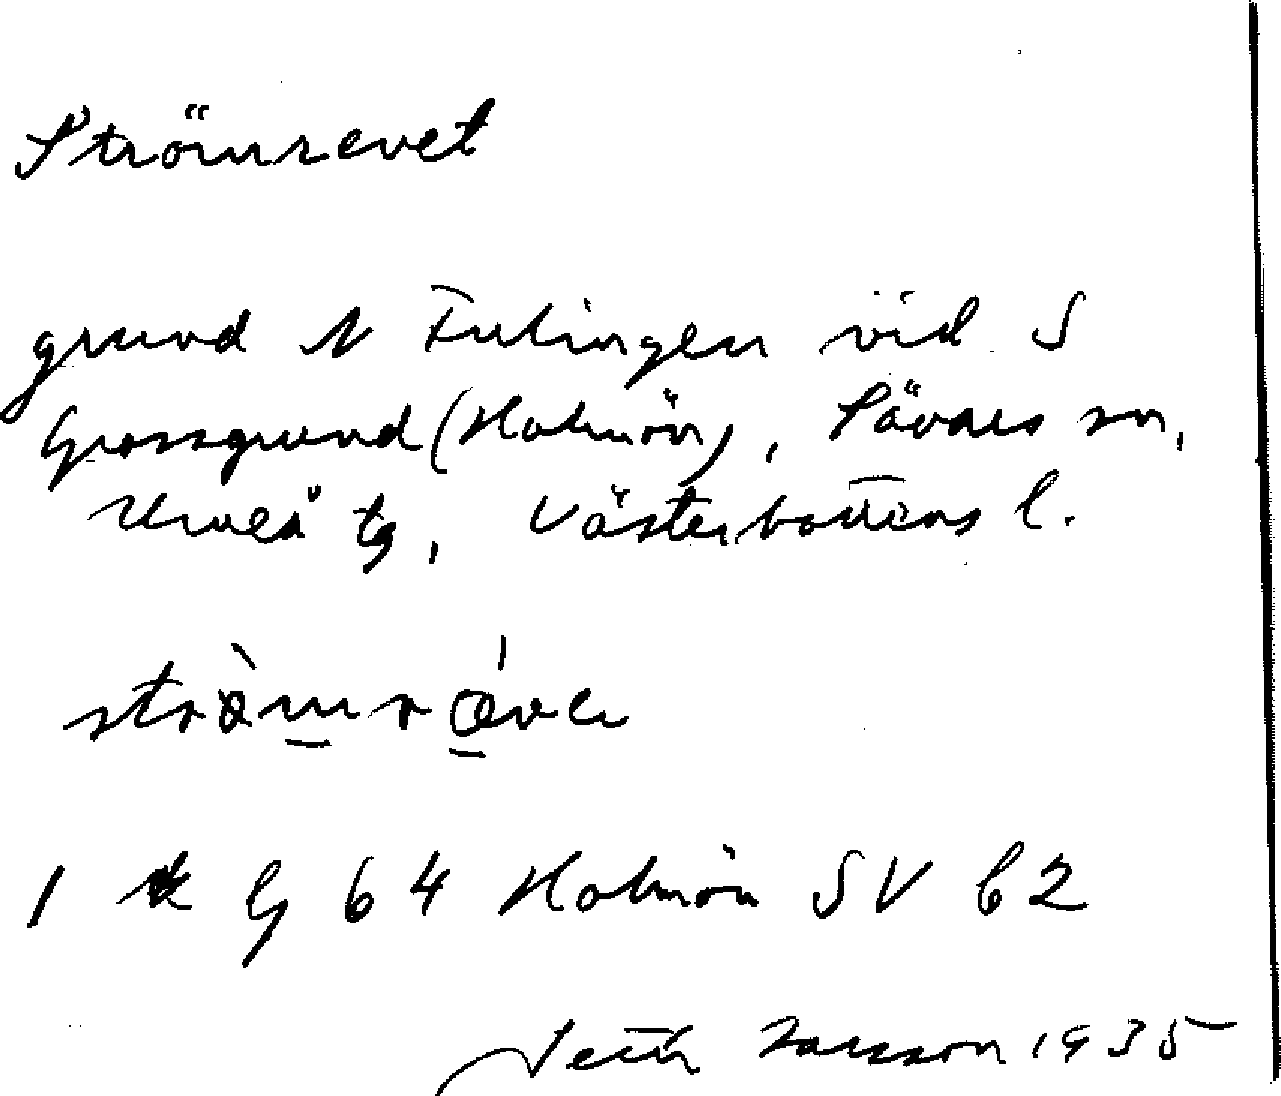 Strömrevet
grund N Fulingen vid S
Grossgrund (Holmön), Sävars sn,
Umeå tg, Västerbottens l.
strö̀mrǽve
1 k G 64 Holmön SV b2
Seth Jansson 1935